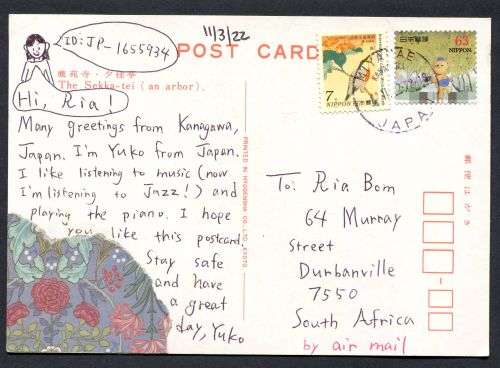 ID: JP-1655934
11/3/22
POST CARD
鹿苑寺・夕佳亭
The Sekka-tei (an arbor).
Hi, Ria!
Many greetings from Kanagawa,
Japan. I'm Yuko from Japan.
I like listening to music (now
I'm listening to Jazz!) and
playing the piano. I hope
you like this postcard.
Stay safe
and have
a great
day, Yuko
7
NIPPON 日本郵便
63
日本郵便
NIPPON
JAPA
郵便はがき
To: Ria Bom
64 Murray
Street
Durbanville
7550
South Africa
by air mail